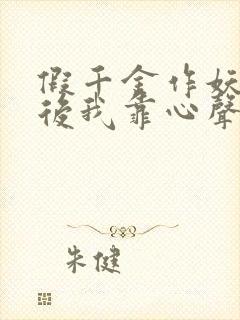 假千金作妖
後我靠心聲
朱健